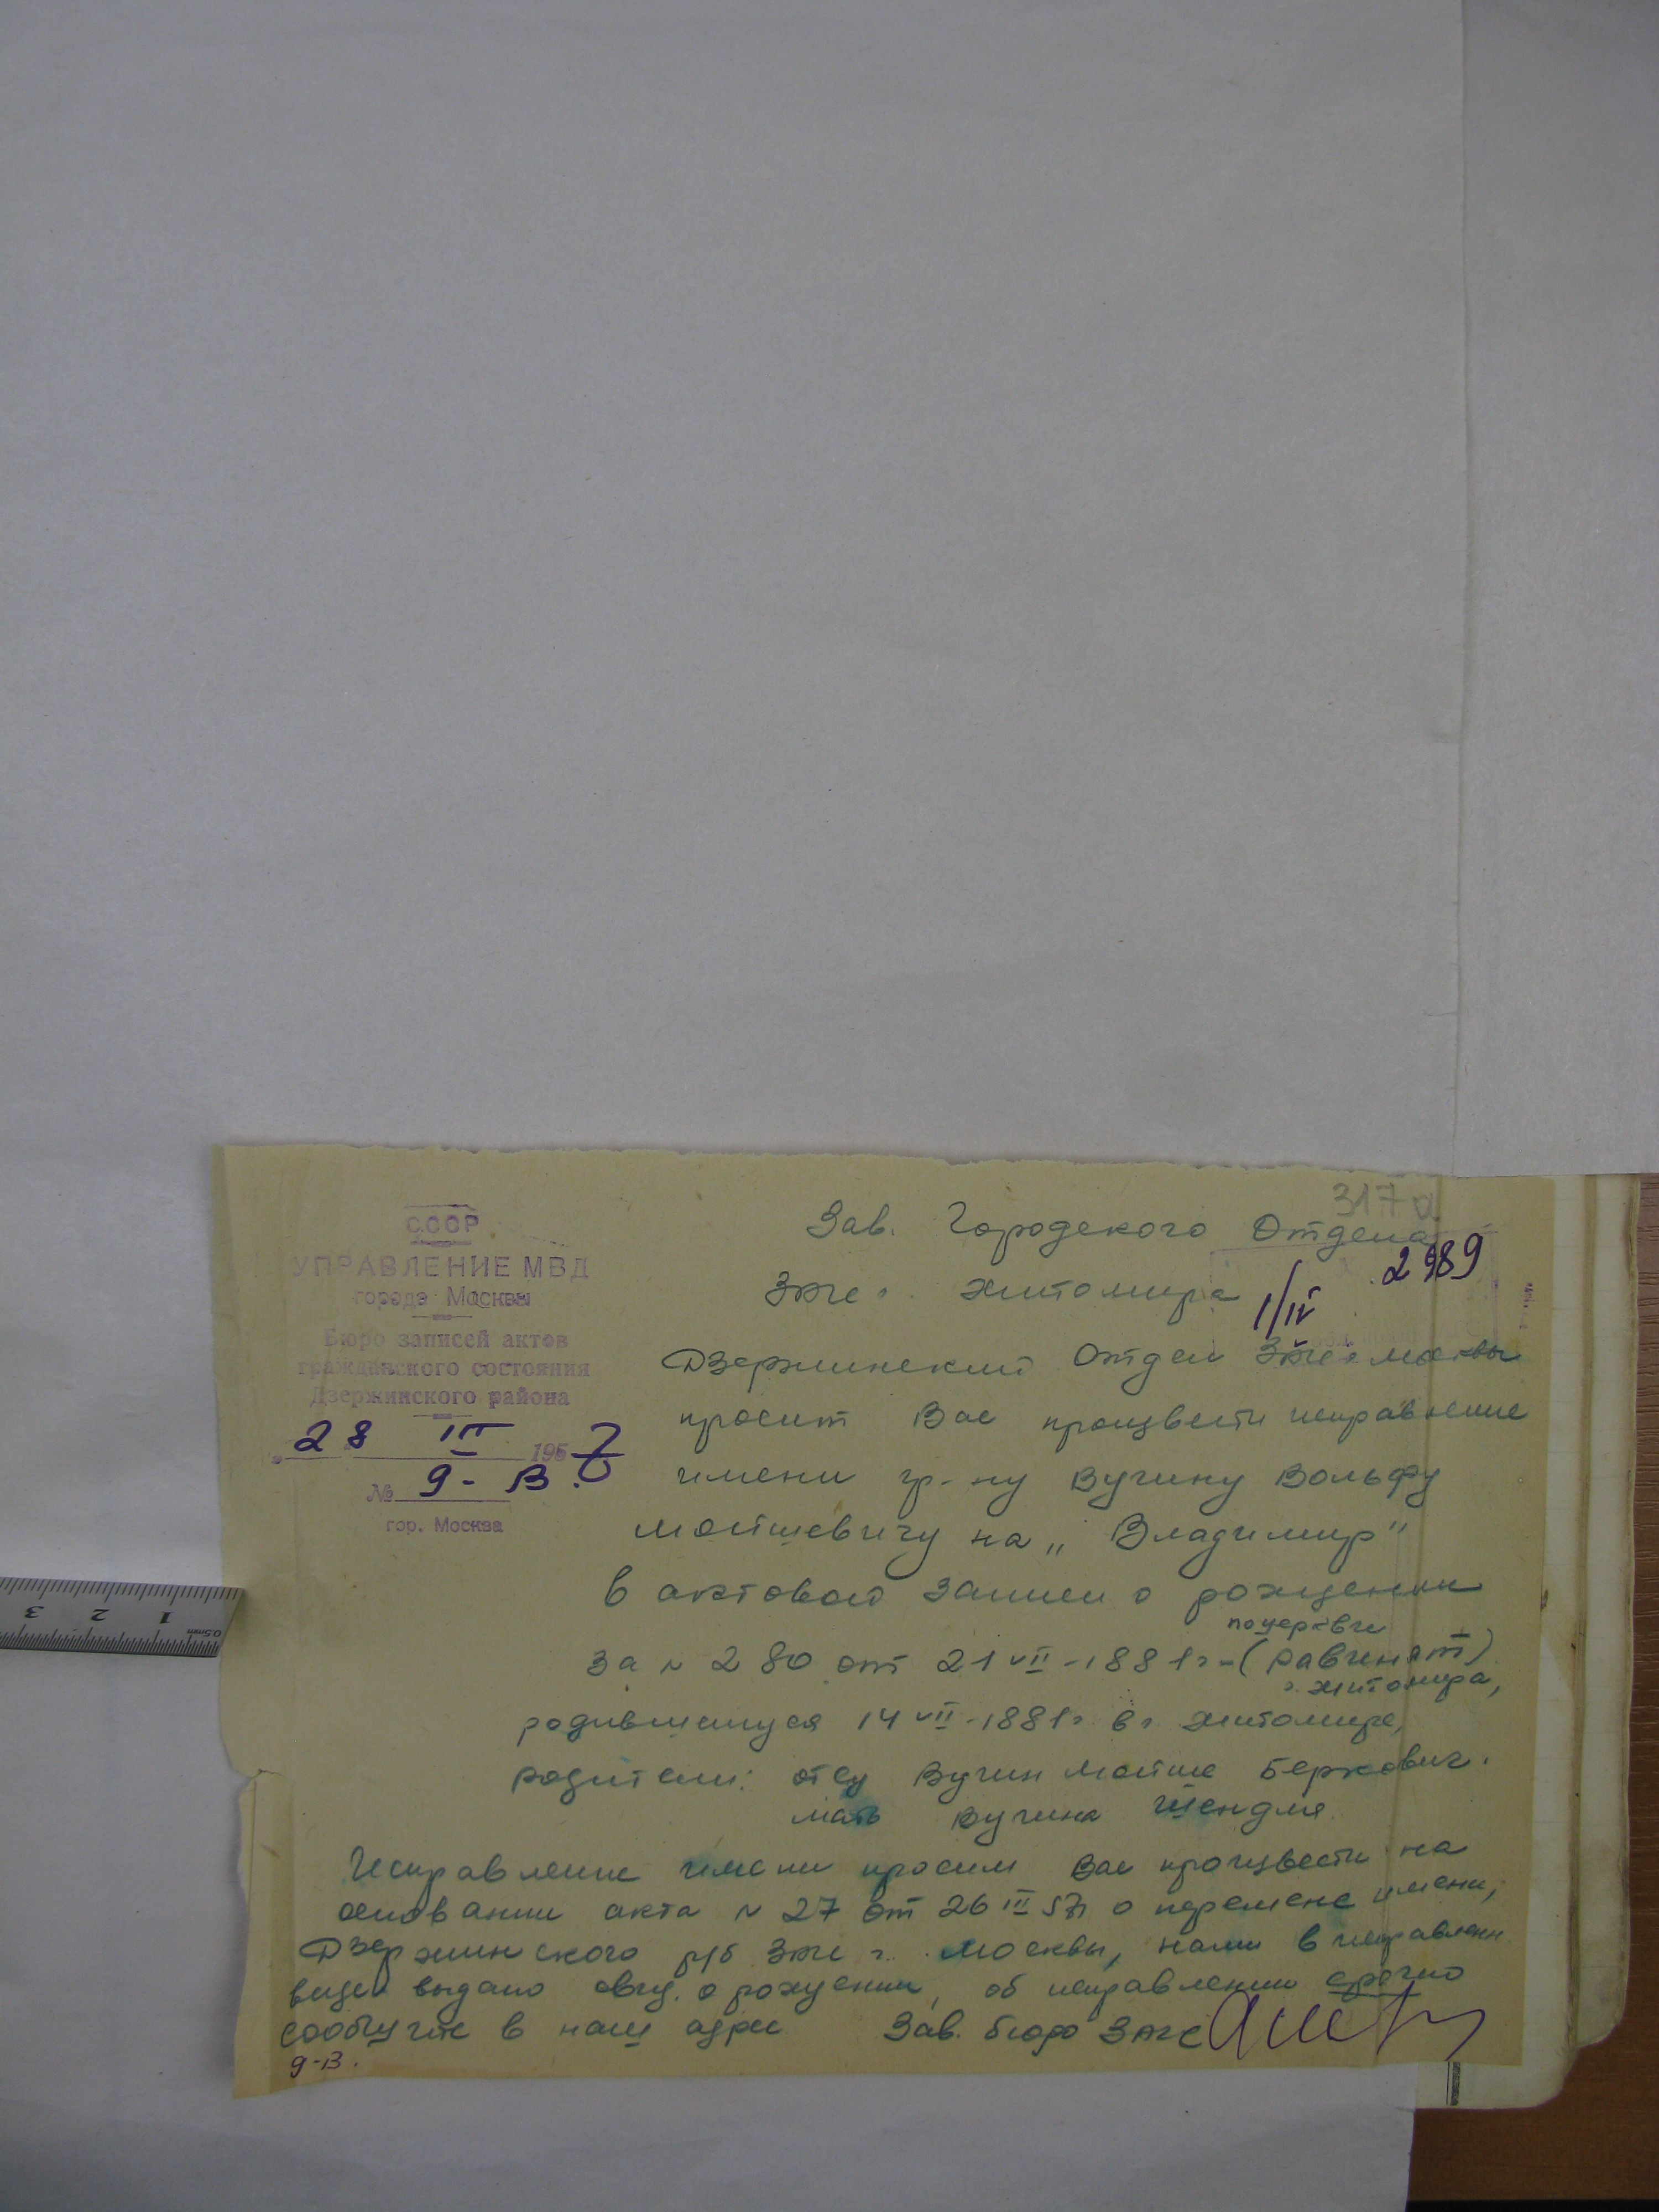 317а
СССР
УПРАВЛЕНИЕ МВД
города Москвы
Бюро записей актов
гражданского состояния
Дзержинского района
28 III 1957
№ 9-В.
гор. Москва
Зав. Городского Отдела
Загс г. Житомира
1/IV 2989
Дзержинский Отдел Загс г. Москвы
просит Вас произвести исправление
имени гр-ну Вугину Вольфу
Мойшевичу на „Владимир"
в актовой записи о рождении
за № 280 от 21 VII-1881г-(раввинат)
г. Житомира,
родившемуся 14 VII-1881г в г. Житомире,
родители: отец Вугин Мойше Беркович.
мать Вугина Шендля
Исправление имени просим Вас произвести на
основании акта № 27 от 26 III 57г о перемене имени,
Дзержинского р/б Загс г. Москвы, нами в исправлен.
виде выдано свид. о рождении, об исправлении срочно
сообщите в наш адрес Зав. бюро Загс
9-В.